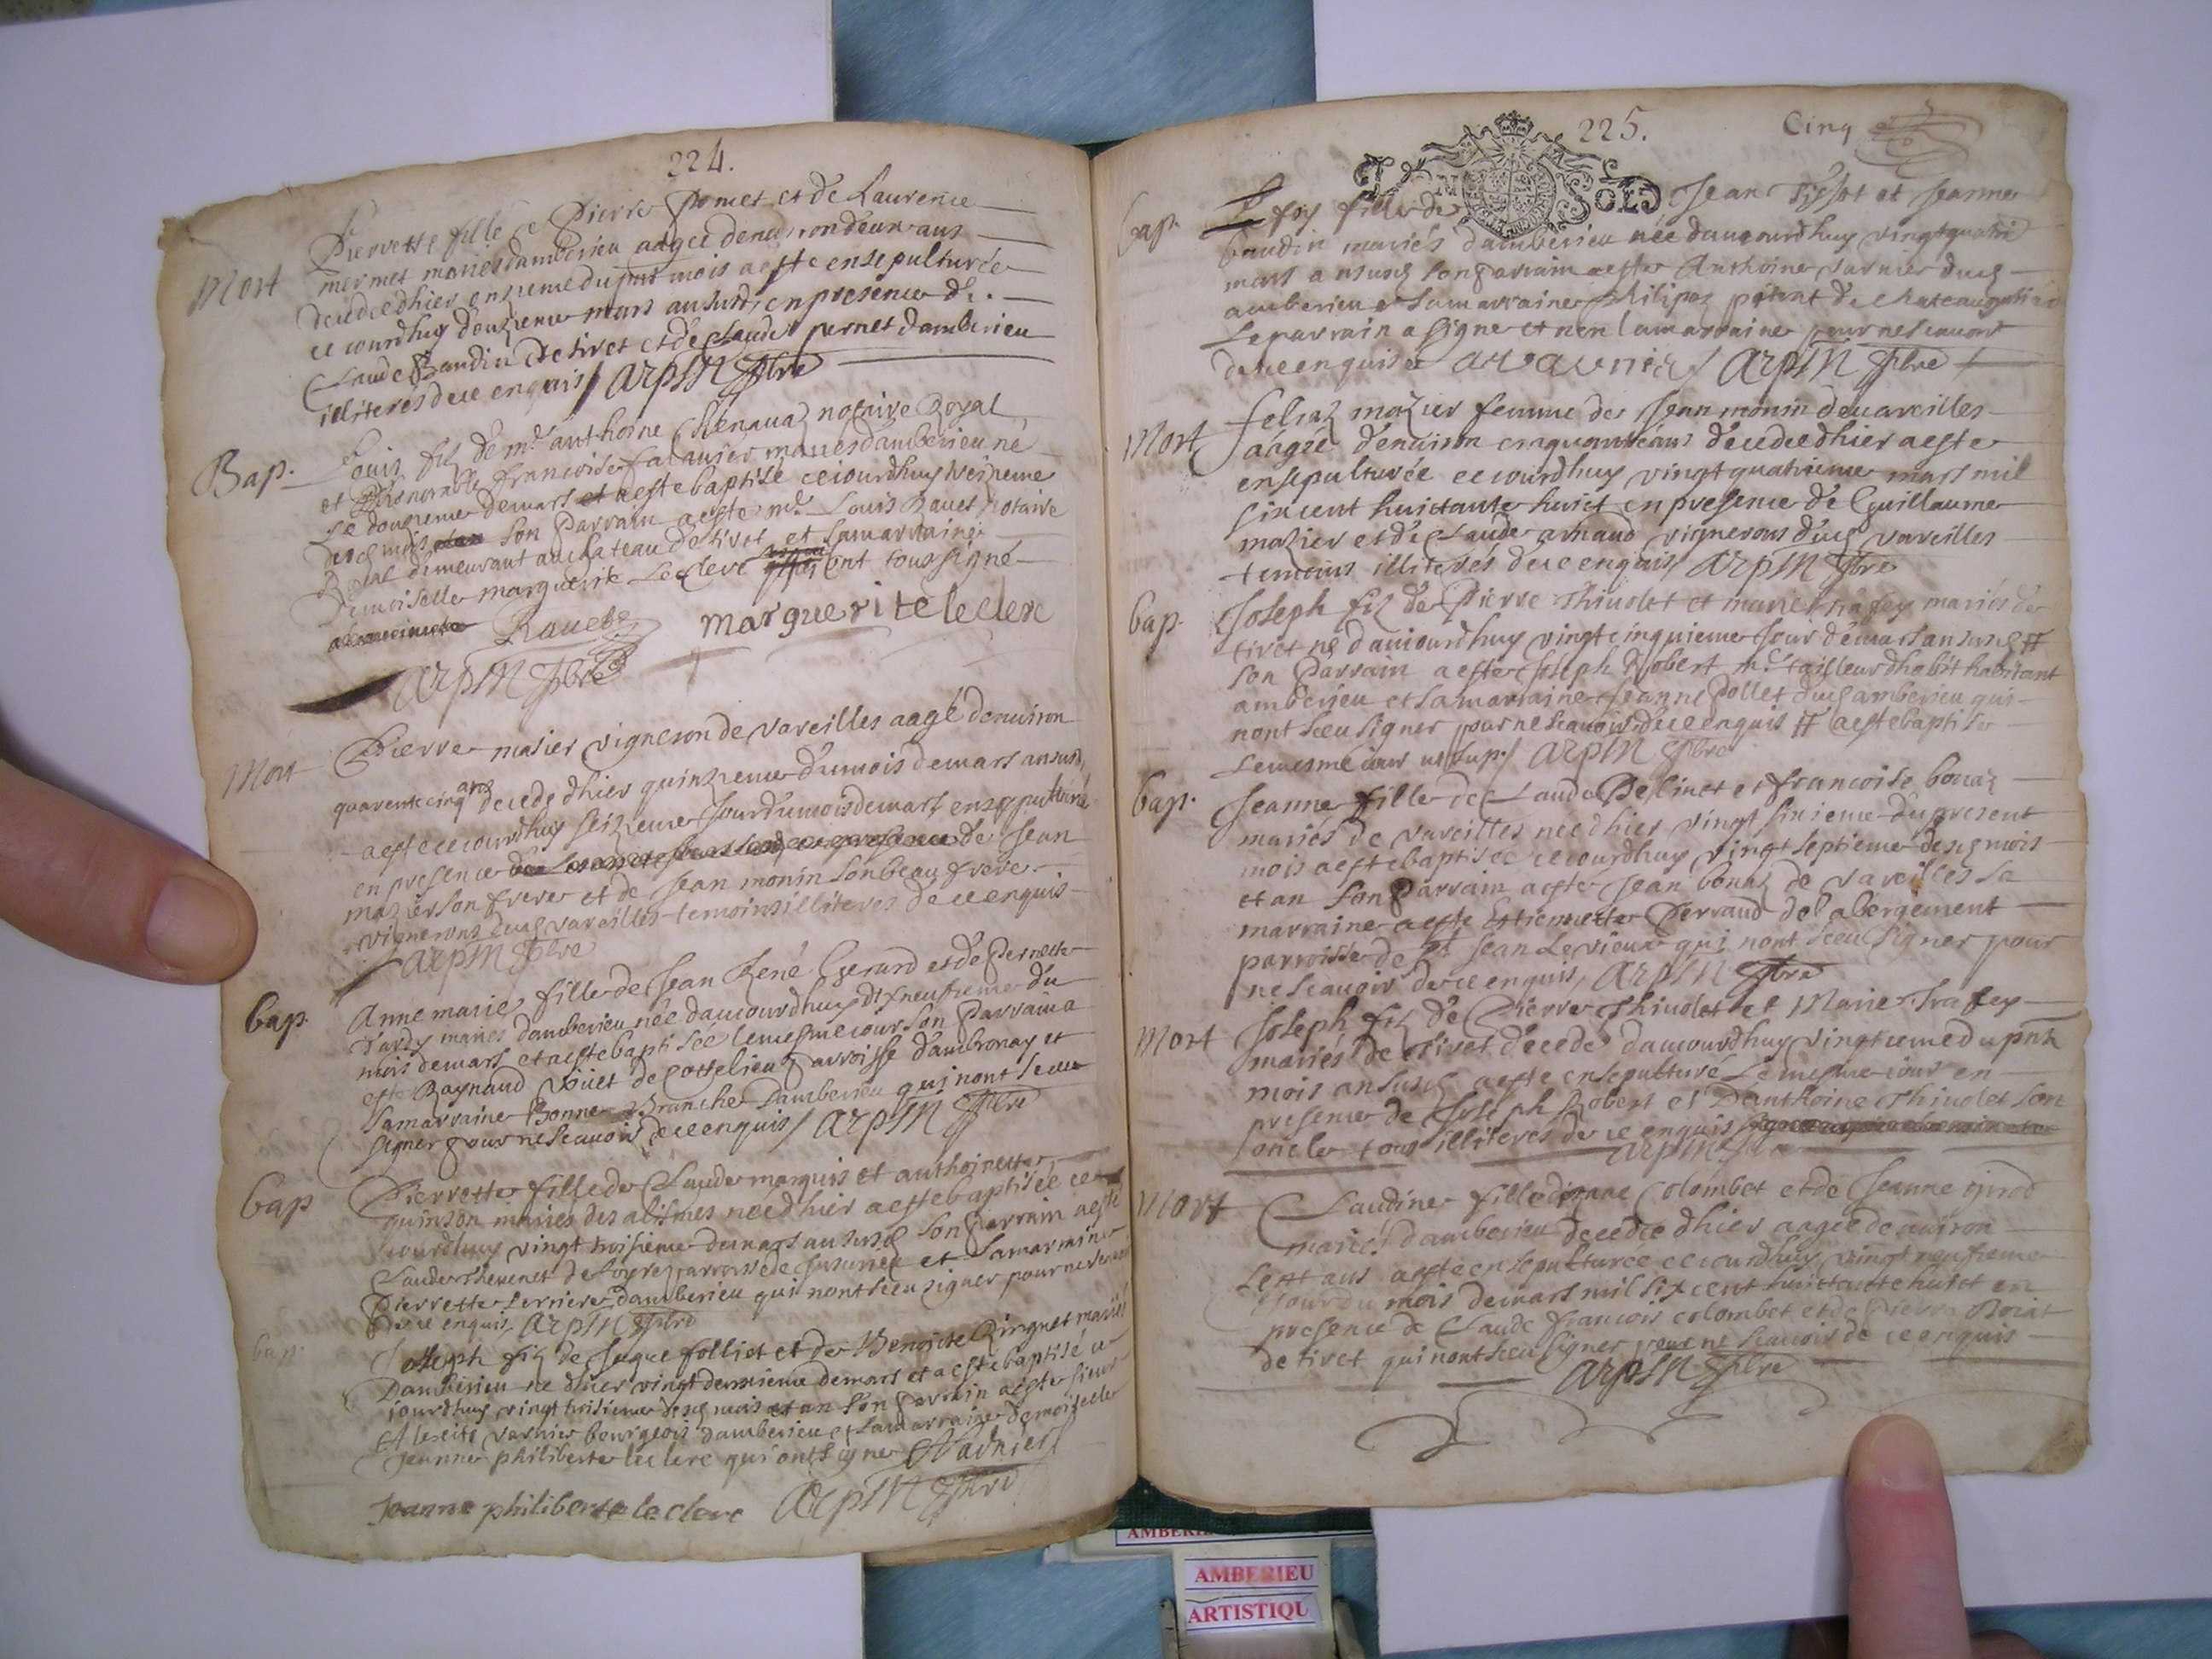 224.
Mort
Pierrette fille de Pierre Pomet et de Laurence
mermet mariés damberieu aagee denviron deux ans
decedee dhier onzieme du pnt mois a este ensepulturée
ce iourdhuy douzieme mars an susd, en presence de
Claude Baudin de tiret et de Claude pernet damberieu
illiteres de ce enquis / Arpin Pbre
Bap.
Louis filz de mre anthoine Chenavaz notaire Royal
et honorable francoise mariés damberieu né
le douzieme de mars et a este baptisé ce iourdhuy treizieme
dud mois son Parrain a este mre Louis Ravet Notaire
Royal demeurant au chateau de tiret et sa marraine
Demoiselle marguerite Leclerc ont tous signé
Ravet marguerite leclerc
Arpin Pbre
Mort
Pierre masier vigneron de vareilles aagé denviron
quarente cinq ans decede dhier quinzieme du mois de mars an susd,
a este ce iourdhuy seizieme jour du mois de mars ensepulturé
en presence de Jean
mazier son frere et de Jean monin son beau frere
vignerons dud vareilles temoins illiteres de ce enquis
Arpin Pbre
bap.
Anne marie fille de Jean René Gerard et de Pernette
mariés damberieu née dauiourdhuy dixneufieme du
mois de mars et a este baptisée le mesme iour son Parrain a
este Raynaud de Cottelieu parroisse dambronay et
sa marraine Bonne Branche damberieu qui nont sceu
signer pour ne scauoir de ce enquis / Arpin Pbre
bap
Pierrette fille de Claude marquis et anthoinette
quinson mariés des alismes née dhier a este baptisée ce
iourdhuy vingt troisieme de mars an susd, son Parrain a este
Claude Thevenet de parroisse de et sa marraine
Pierrette damberieu qui nont sceu signer pour ne scauoir
de ce enquis Arpin Pbre
bap.
Joseph filz de Juque folliet et de Benoite Ringuet mariés
Damberieu né dhier vingt deuxieme de mars et a este baptisé ce
iourdhuy vingt troisieme desd mois et an son parrain a este sieur
Varnier bourgeois damberieu et sa marraine demoiselle
Jeanne philiberte leclerc qui ont signé Varnier
Jeanne philiberte leclerc Arpin Pbre
225. Cinq
bap.
fille de Jean et Jeanne
baudin mariés damberieu née dauiourdhuy vingt quatre
mars an susd, son parrain a este Anthoine varnier dud
amberieu et sa marraine Philipaz de chateau
Le parrain a signe et non la marraine pour ne scauoir
de ce enquise Arpin Pbre
Mort
felizaz mazier femme de Jean monin de vareilles
aagée denviron cinquante ans decedee dhier a este
ensepulturée ce iourdhuy vingt quatrieme mars mil
six cent huictante huict en presence de Guillaume
mazier et de Claude arnaud vignerons dud vareilles
temoins illiterés de ce enquis / Arpin Pbre
bap.
Joseph filz de Pierre Thiuolet et marie trafey mariés de
tiret né dauiourdhuy vingt cinquieme Jour de mars an susd #
son Parrain a este Joseph Robert mre tailleur dhabit habitant
amberieu et sa marraine Jeanne Pollet dud amberieu qui
nont sceu signer pour ne scauoir de ce enquis # a este baptisé
le mesme iour ut sup / Arpin Pbre
bap.
Jeanne fille de Claude et francoise bonaz
mariés de vareilles née dhier vingt sixieme du present
mois a este baptisée ce iourdhuy vingt septieme desd mois
et an son Parrain a este Jean bonaz de vareilles sa
marraine a este Estiennette Perraud de labergement
parroisse de St Jean Le vieux qui nont sceu signer pour
ne scauoir de ce enquis, Arpin Pbre
Mort
Joseph filz de Pierre Thiuolet et Marie Trafey
mariés de tiret decede dauiourdhuy du pnt
mois an susd, a este ensepulturé le mesme iour en
presence de Joseph Robert et Danthoine Thiuolet son
oncle tous illiteres de ce enquis
Arpin Pbre
Mort
Claudine fille Colombet et de Jeanne girod
mariés damberieu decedee dhier aagee denviron
sept ans a este ensepulturee ce iourdhuy vingt neufieme
Jour du mois de mars mil six cent huictante huict en
presence de Claude francois colombet et de Pierre
de tiret qui nont sceu signer pour ne scauoir de ce enquis
Arpin Pbre
AMBERIEU
AMBERIEU
ARTISTIQU